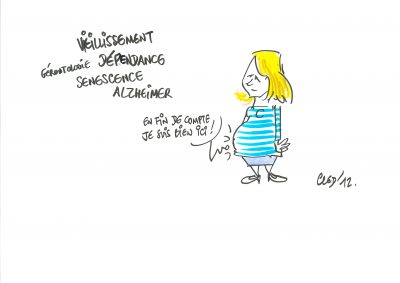 VIEILLISSEMENT
GÉRONTOLOGIE DÉPENDANCE
SENESCENCE
ALZHEIMER
EN FIN DE COMPTE
JE SUIS BIEN ICI !
C
CLED'12.